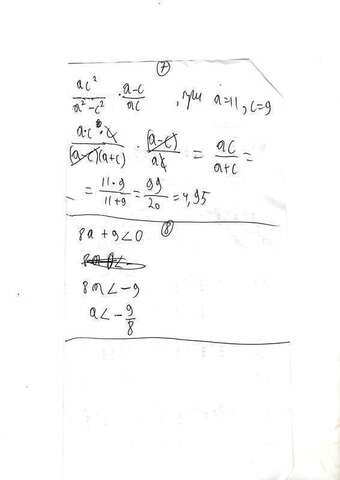 7
ac²/a²-c² · a-c/ac , при a=11, c=9
a·c·c/(a-c)(a+c) · (a-c)/ac = ac/a+c =
= 11·9/11+9 = 99/20 = 4,95
8
8a + 9 < 0
8a < -9
a < - 9/8